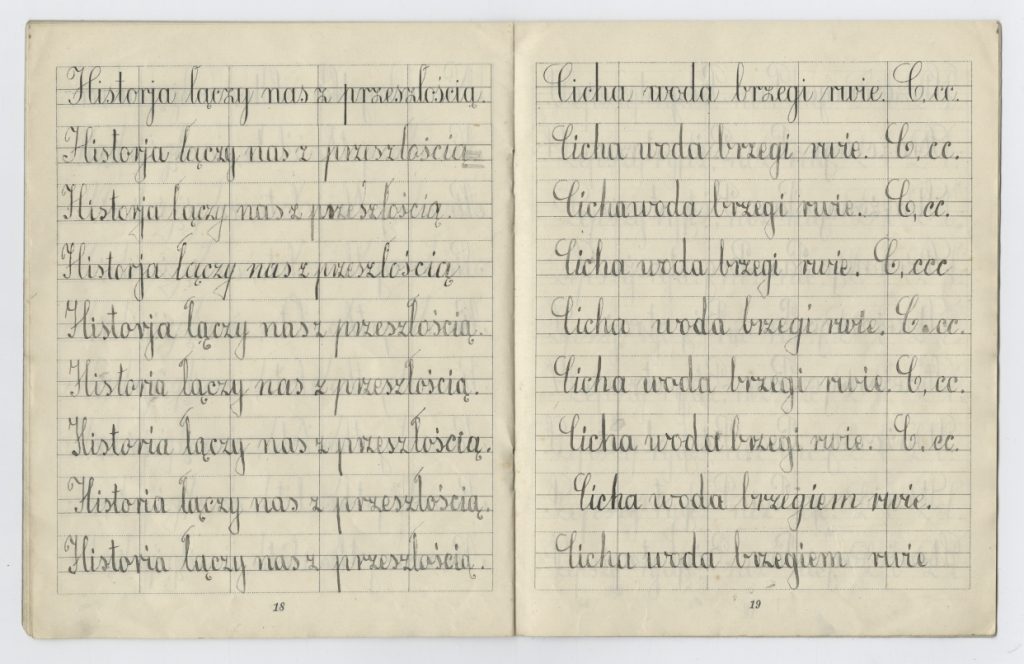 Historja łączy nas z przeszłością.
Historja łączy nas z przeszłością
Historja łączy nas z przeszłością.
Historja łączy nas z przeszłością
Historja łączy nas z przeszłością.
Historia łączy nas z przeszłością.
Historia łączy nas z przeszłością.
Historia łączy nas z przeszłością.
Historia łączy nas z przeszłością.
18
Cicha woda brzegi rwie. C, cc.
Cicha woda brzegi rwie. C, cc.
Cicha woda brzegi rwie. C, cc.
Cicha woda brzegi rwie. C, ccc
Cicha woda brzegi rwie. C. cc.
Cicha woda brzegi rwie. C, cc.
Cicha woda brzegi rwie. C. cc.
Cicha woda brzegiem rwie.
Cicha woda brzegiem rwie
19